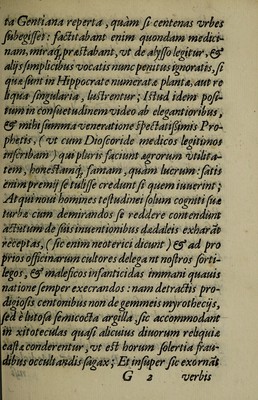 ta Gentiana reperta, quàm si centenas vrbes
subegisset: factitabant enim quondam medici-
nam, miraq́; præstabant, vt de alysso legitur, &
alijs simplicibus vocatis nunc penitus ignoratis, si
quæ sunt in Hippocrate numeratæ plantæ, aut re
liqua singularia, lustrentur; Istud idem posi-
tum in consuetudinem video ab elegantioribus,
& mihi summa veneratione spectatissimis Pro-
phetis, (vt cum Dioscoride medicos legitimos
inscribam) qui pluris faciunt agrorum vtilita-
tem, honestamq́; famam, quàm lucrum: satis
enim præmij se tulisse credunt si quem iuuerint;
At qui noui homines testudinei solum cogniti suæ
turbæ cum demirandos se reddere contendunt
actutum de suis inuentionibus dædaleis exharãt
receptas, (sic enim neoterici dicunt) & ad pro
prios officinarum cultores delegant nostros sorti-
legos, & maleficos infanticidas immani quauis
natione semper execrandos: nam detractis pro-
digiosis centonibus non de gemmeis myrothecijs,
sed è lutosa semicocta argilla, sic accommodant
in xitoteculas quasi alicuius diuorum reliquiæ
castæ conderentur, vt est horum solertia frau-
dibus occultandis sagax; Et insuper sic exornãt
G 2 verbis